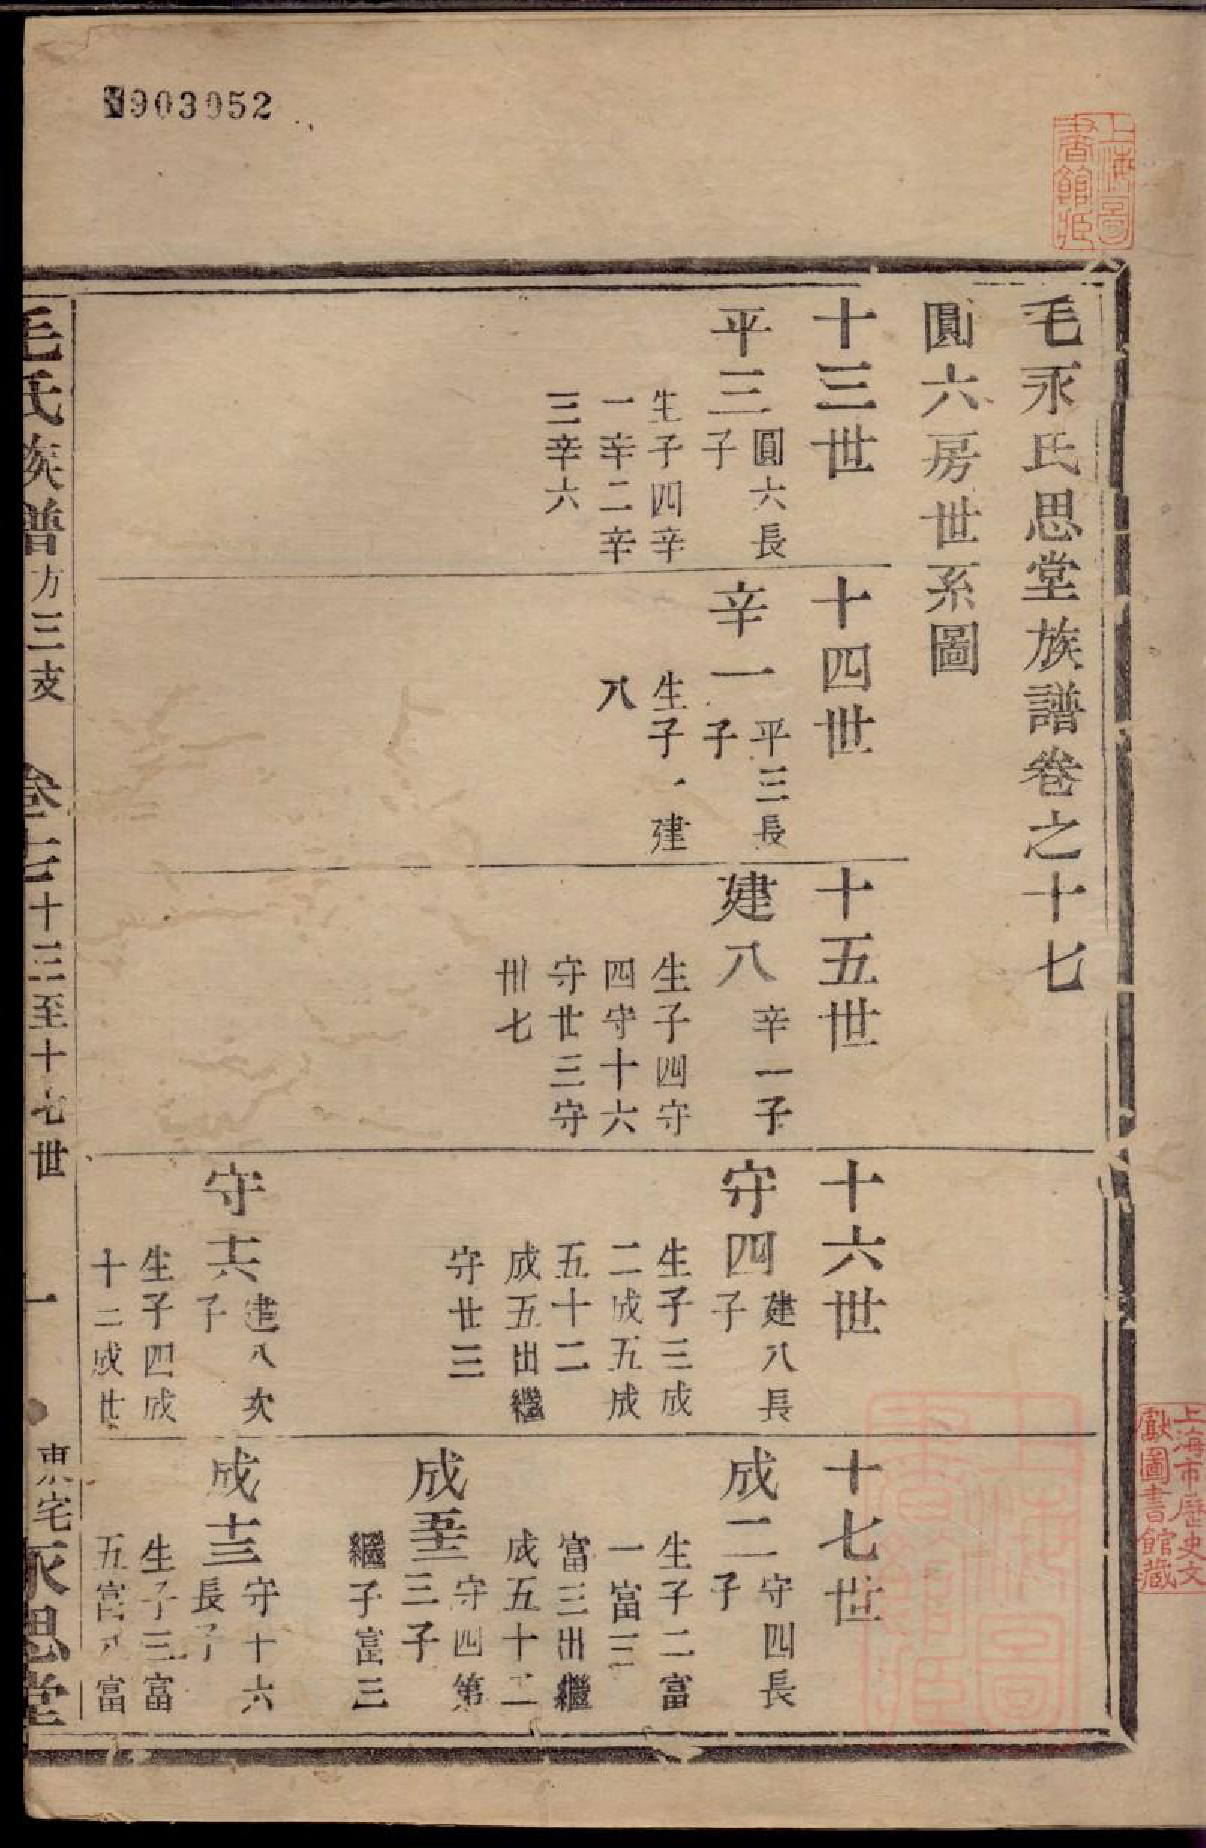 903052
上海圖
書館藏
毛永氏思堂族譜卷之十七
圓六房世系圖
十三世
平三
圓六長
子
生子四辛
一辛二辛
三辛六
十四世
辛一
平三長
子
生子一建
八
十五世
建八
辛一子
生子四守
四守十六
守廿三守
卌七
十六世
守四
建八長
子
生子三成
二成五成
五十二
成五出繼
守廿三
守十六
建八次
子
生子四成
十三成廿
十七世
成二
守四長
子
生子二富
一富三
富三出繼
成五十二
成五十二
守四第
三子
繼子富三
成十三
守十六
長子
生子三富
五富八富
毛氏族譜
方三支
卷十七
十三至十七世
一
東宅
永思堂
上海市歷史文
獻圖書館藏